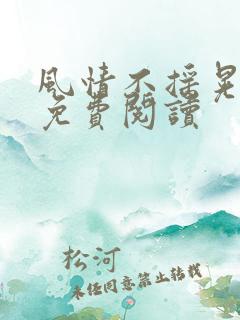 風情不搖晃
免費閱讀
松河
未经同意禁止转载